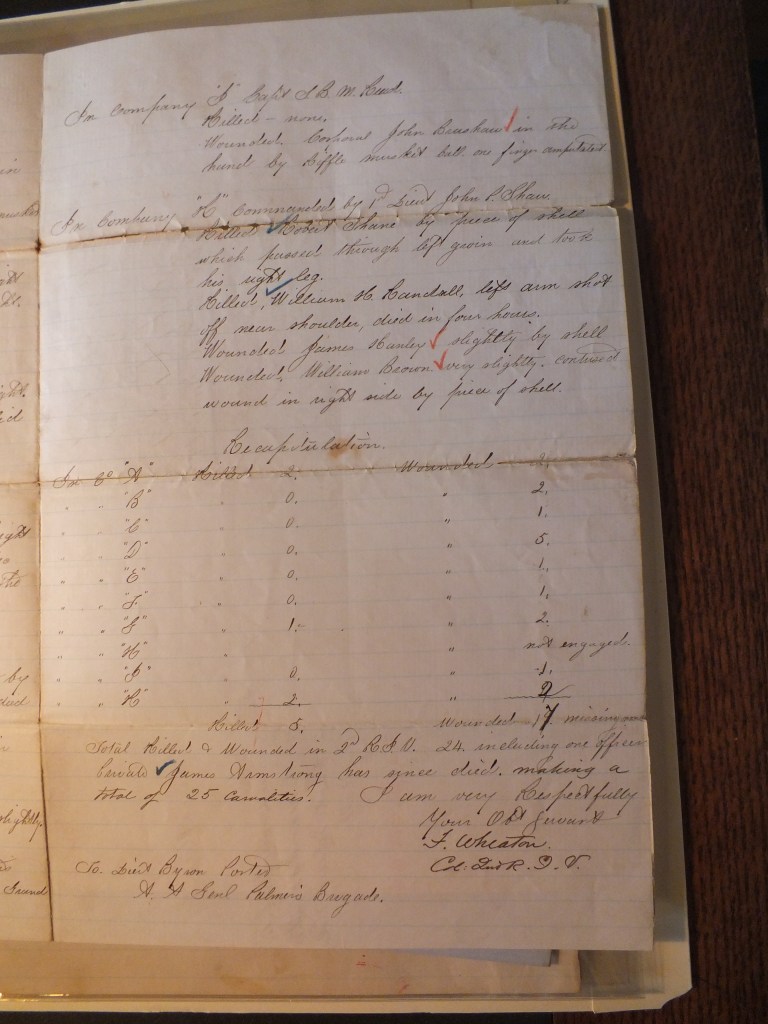 In Company "I" Capt S. B. M. Read.
Killed - none.
Wounded. Corporal John Bradshaw in the
hand by Riffle musket ball. one finger amputated.
In Company "K" Commanded by 1st Lieut John P. Shaw.
Killed Robert Shane by piece of shell
which passed through left groin and took
his right leg.
Killed, William H. Randall, left arm shot
off near shoulder, died in four hours.
Wounded James Hanley slightly by shell
Wounded, William Brown very slightly. contused
wound in right side by piece of shell.
Recapitulation.
In Co "A" Killed 2. Wounded 2.
" " "B" " 0. " 2.
" " "C" " 0. " 1.
" " "D" " 0. " 5.
" " "E" " 0. " 1.
" " "F" " 0. " 1.
" " "G" " 1. " 2.
" " "H" " " not engaged.
" " "I" " 0. " 1.
" " "K" " 2. " 2
Killed 5. Wounded 17. missing
Total Killed & Wounded in 2d R.I.V. 24. including one officer
Private James Armstrong has since died. making a
total of 25 Casualities. I am very Respectfully
Your Obt Servant
F. Wheaton.
Col: 2nd R.I.V.
To. Lieut Byron Porter
A. A Genl Palmer's Brigade.